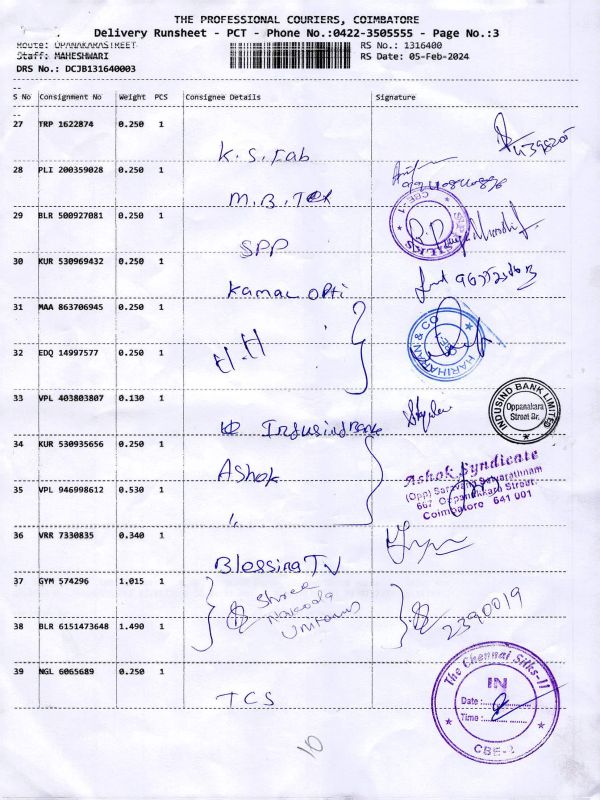 THE PROFESSIONAL COURIERS, COIMBATORE
Delivery Runsheet - PCT - Phone No.:0422-3505555 - Page No.:3
Route: OPANAKARASTREET RS No.: 1316400
Staff: MAHESHWARI RS Date: 05-Feb-2024
DRS No.: DCJB131640003
S No Consignment No Weight PCS Consignee Details Signature
27 TRP 1622874 0.250 1
K.S.Fab
28 PLI 200359028 0.250 1
M.B.Tex
29 BLR 500927081 0.250 1
CBE-1
SPP
30 KUR 530969432 0.250 1
Kamal Opti
31 MAA 863706945 0.250 1
H.H
HARIHARAN & CO
32 EDQ 14997577 0.250 1
33 VPL 403803807 0.130 1
INDUSIND BANK LIMITED
Oppanakara
Street Br.
Indusind Bank
34 KUR 530935656 0.250 1
Ashok
Ashok Syndicate
(Opp) Saravana Selvarathnam
667 Oppanakkara Street.
Coimbatore 641 001
35 VPL 946998612 0.530 1
"
36 VRR 7330835 0.340 1
Blessing TV
37 GYM 574296 1.015 1
Shree
Nakoda
Uniforms
2390019
38 BLR 6151473648 1.490 1
39 NGL 6065689 0.250 1
TCS
The Chennai Silks-II
IN
Date :
Time :
CBE-1
10